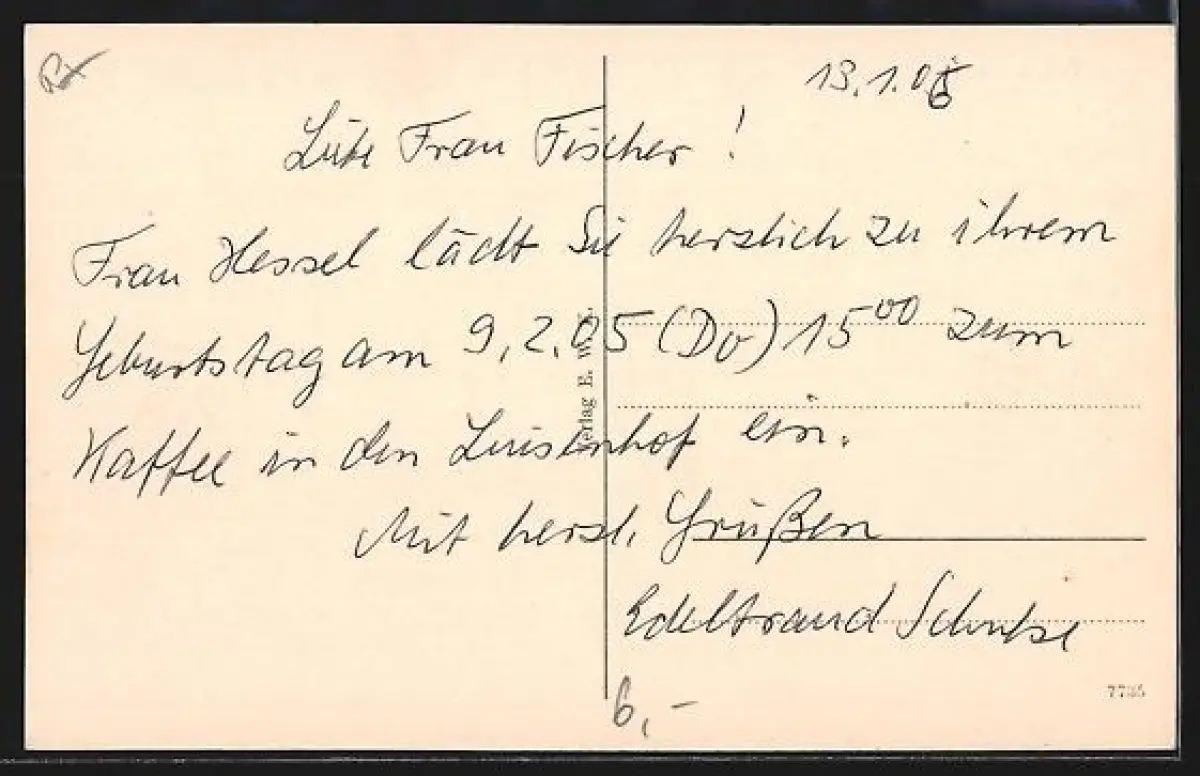 13.1.06
Liebe Frau Fischer!
Frau Hessel lädt Sie herzlich zu ihrem
Geburtstag am 9.2.05 (Do) 15⁰⁰ zum
Kaffee in den Luisenhof ein.
Mit herzl. Grüßen
Edeltraud Schulze
6,-
Verlag E.
7735